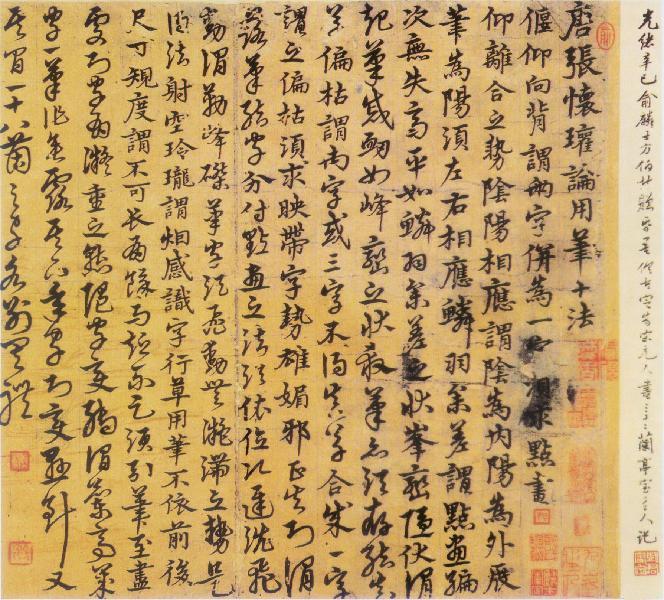 唐張懷瓘論用筆十法
偃仰向背謂兩字併為一字須求點畫
仰離合之勢陰陽相應謂陰為內陽為外展
筆為陽須左右相應鱗羽參差謂點畫編
次無失高平如鱗羽參差之狀峯巒隱伏謂
起筆蹙衂如峰巒之狀殺筆亦須存結
草偏枯謂兩字或三字不得真草合成一字
謂之偏枯須求映帶字勢雄媚邪正失則謂
落筆結字分付點畫之法須依位次遲澁飛
動謂勒峰磔筆字須飛動無凝滯之勢是
得法射空玲瓏謂烟感識字行草用筆不依前後
尺寸規度謂不可長有餘而短不足須引筆至盡
處則字有凝重之態隨字變轉謂蘭亭歲
字一筆作垂露其上年字則變懸針又
其間一十八箇之字各別有體
光緒辛巳